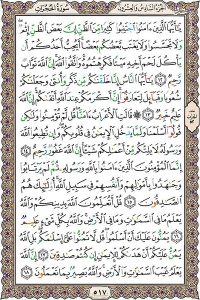 الجزء السادس والعشرون سورة الحجرات
يَٰٓأَيُّهَا ٱلَّذِينَ ءَامَنُوا۟ ٱجْتَنِبُوا۟ كَثِيرًا مِّنَ ٱلظَّنِّ إِنَّ بَعْضَ ٱلظَّنِّ إِثْمٌ
وَلَا تَجَسَّسُوا۟ وَلَا يَغْتَب بَّعْضُكُم بَعْضًا أَيُحِبُّ أَحَدُكُمْ أَن
يَأْكُلَ لَحْمَ أَخِيهِ مَيْتًا فَكَرِهْتُمُوهُ وَٱتَّقُوا۟ ٱللَّهَ إِنَّ ٱللَّهَ تَوَّابٌ
رَّحِيمٌ ١٢ يَٰٓأَيُّهَا ٱلنَّاسُ إِنَّا خَلَقْنَٰكُم مِّن ذَكَرٍ وَأُنثَىٰ وَجَعَلْنَٰكُمْ
شُعُوبًا وَقَبَآئِلَ لِتَعَارَفُوٓا۟ إِنَّ أَكْرَمَكُمْ عِندَ ٱللَّهِ أَتْقَىٰكُمْ إِنَّ ٱللَّهَ عَلِيمٌ
خَبِيرٌ ١٣ قَالَتِ ٱلْأَعْرَابُ ءَامَنَّا قُل لَّمْ تُؤْمِنُوا۟ وَلَٰكِن
قُولُوٓا۟ أَسْلَمْنَا وَلَمَّا يَدْخُلِ ٱلْإِيمَٰنُ فِى قُلُوبِكُمْ وَإِن تُطِيعُوا۟ ٱللَّهَ
وَرَسُولَهُۥ لَا يَلِتْكُم مِّنْ أَعْمَٰلِكُمْ شَيْـًٔا إِنَّ ٱللَّهَ غَفُورٌ رَّحِيمٌ ١٤
إِنَّمَا ٱلْمُؤْمِنُونَ ٱلَّذِينَ ءَامَنُوا۟ بِٱللَّهِ وَرَسُولِهِۦ ثُمَّ لَمْ يَرْتَابُوا۟
وَجَٰهَدُوا۟ بِأَمْوَٰلِهِمْ وَأَنفُسِهِمْ فِى سَبِيلِ ٱللَّهِ أُو۟لَٰٓئِكَ هُمُ
ٱلصَّٰدِقُونَ ١٥ قُلْ أَتُعَلِّمُونَ ٱللَّهَ بِدِينِكُمْ وَٱللَّهُ
يَعْلَمُ مَا فِى ٱلسَّمَٰوَٰتِ وَمَا فِى ٱلْأَرْضِ وَٱللَّهُ بِكُلِّ شَىْءٍ عَلِيمٌ
١٦ يَمُنُّونَ عَلَيْكَ أَنْ أَسْلَمُوا۟ قُل لَّا تَمُنُّوا۟ عَلَىَّ إِسْلَٰمَكُم بَلِ ٱللَّهُ
يَمُنُّ عَلَيْكُمْ أَنْ هَدَىٰكُمْ لِلْإِيمَٰنِ إِن كُنتُمْ صَٰدِقِينَ ١٧ إِنَّ ٱللَّهَ
يَعْلَمُ غَيْبَ ٱلسَّمَٰوَٰتِ وَٱلْأَرْضِ وَٱللَّهُ بَصِيرٌۢ بِمَا تَعْمَلُونَ ١٨
٥١٧